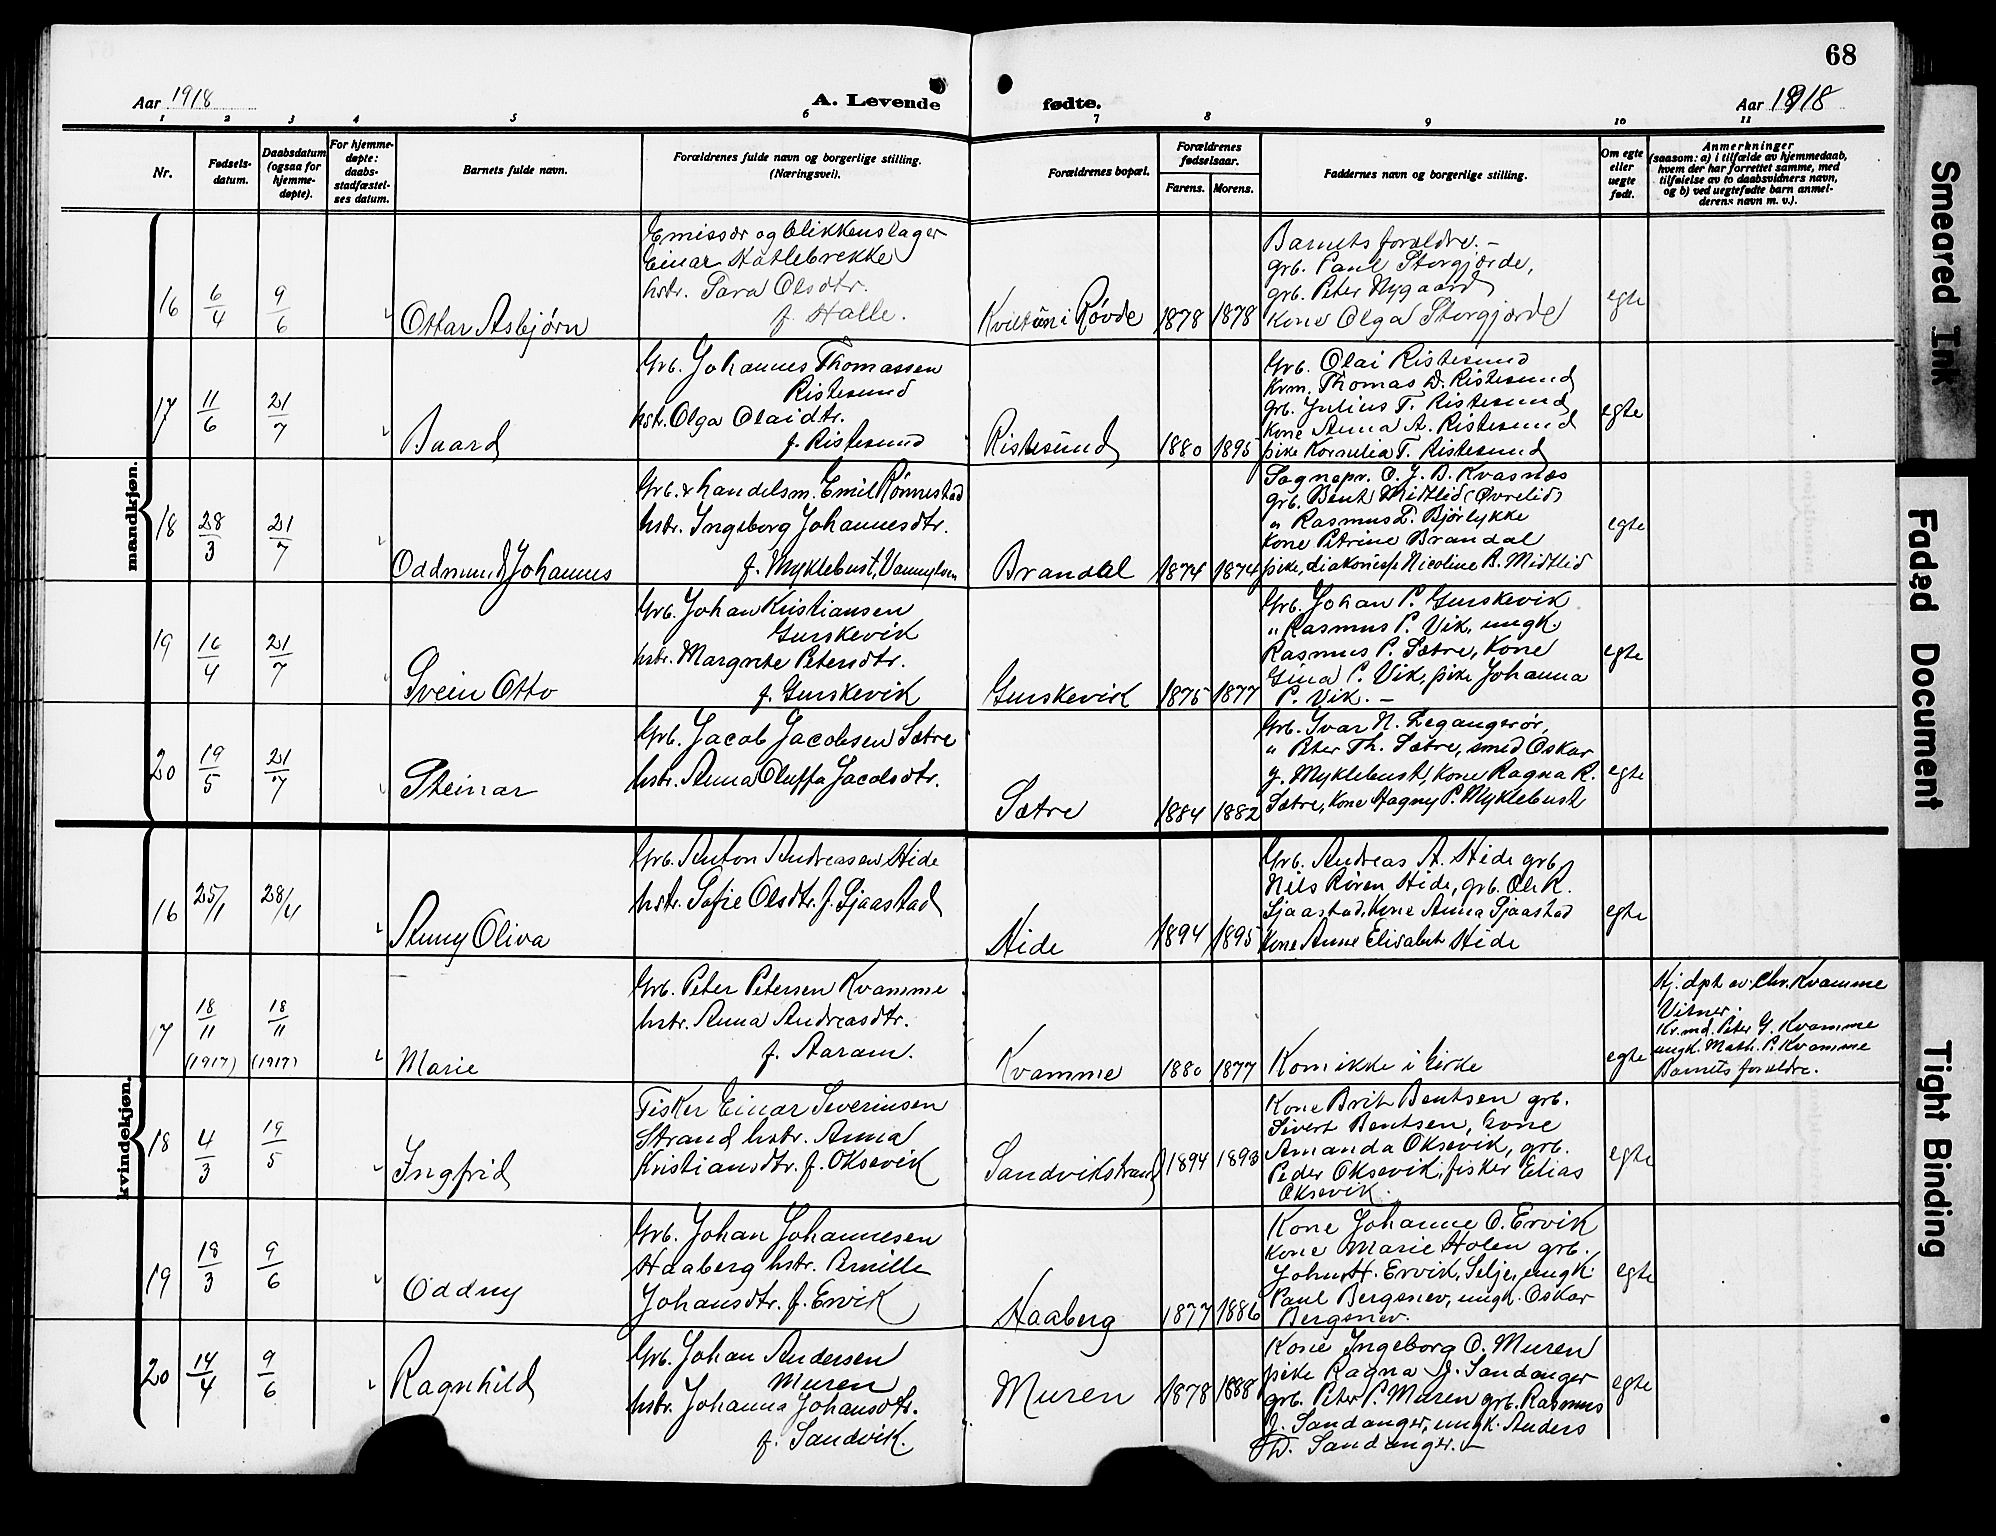 68
Aar 1918
A. Levende
fødte.
Aar 1918
1 2 3 4 5 6 7 8 9 10 11
Nr.
Fødsels-
datum.
Daabsdatum
(ogsaa for
hjemme-
døpte).
For hjemme-
døpte:
daabs-
stadfæstel-
ses datum.
Barnets fulde navn.
Forældrenes fulde navn og borgerlige stilling.
(Næringsvei).
Forældrenes bopæl.
Forældrenes
fødselsaar.
Farens. Morens.
Faddernes navn og borgerlige stilling.
Om egte
eller
uegte
født.
Anmerkninger
(saasom: a) i tilfælde av hjemmedaab,
hvem der har forrettet samme, med
tilføielse av to daabsvidners navn,
og b) ved uegtefødte barn anmel-
derens navn m. v.).
mandkjøn.
16 6/4 9/6 Ottar Asbjørn
Emissær og blikkenslager
Einar Hatlebrekke
hstr. Sara Olsdtr.
f. Halle.
Kviltun i Røvde 1878 1878
Barnets forældre. –
grb. Paul Storgjørde,
grb. Peter Nygaard
Kone Olga Storgjørde
egte
17 11/6 21/7 Baard
Grb. Johannes Thomassen
Ristesund
hstr. Olga Olaidtr.
f. Ristesund
Ristesund 1880 1895
Grb. Olai Ristesund
Krm. Thomas D. Ristesund
grb. Julius T. Ristesund
Kone Anna A. Ristesund
pike Kornelia T. Ristesund
egte
18 28/3 21/7 Oddmund Johannes
Grb. & handelsm. Emil Rønnestad
hstr. Ingeborg Johannesdtr.
f. Myklebust, Vannylven
Brandal 1874 1874
Sognepr. O. J. B. Kvasnes
grb. Bent Midtlid (Øvrelid)
" Rasmus L. Bjørlykke
Kone Petrine Brandal
pike, diakonisse Nicoline B. Midtlid
egte
19 16/4 21/7 Svein Otto
Grb. Johan Kristiansen
Gurskevik
hstr. Margrete Petersdtr.
f. Gurskevik
Gurskevik 1875 1877
Grb. Johan P. Gurskevik
" Rasmus P. Vik, ungk.
Rasmus P. Sætre, Kone
Gina P. Vik, pike Johanna
P. Vik. –
egte
20 19/5 21/7 Steinar
Grb. Jacob Jacobsen Sætre
hstr. Anna Oluffa Jacobsdtr.
Sætre 1884 1882
Grb. Ivar N. Leganger­ør,
" Peter Th. Sætre, smed Oskar
J. Myklebust, Kone Ragna R.
Sætre, Kone Hagny P. Myklebust
egte
kvindekjøn.
16 25/1 28/4 Anny Oliva
Grb. Anton Andreassen Hide
hstr. Sofie Olsdtr. f. Sjaastad
Hide 1894 1895
Grb. Andreas A. Hide grb.
Nils Røren Hide, grb. Ole K.
Sjaastad, Kone Anna Sjaastad
Kone Anne Elisabet Hide
egte
17 18/11 (1917) 18/11 (1917) Marie
Grb. Peter Petersen Kvamme
hstr. Anna Andreasdtr.
f. Aaram.
Kvamme 1880 1877
Kom ikke i kirke
egte
Hj. dpt av Chr. Kvamme
Vitner:
Kr.md. Peter G. Kvamme
ungk. Math. P. Kvamme
Barnets forældre.
18 4/3 19/5 Ingfrid
Fisker Einar Severinsen
Strand, hstr. Anna
Kristiansdtr. f. Oksevik
Sandvikstrand 1894 1893
Kone Brit Bentsen grb.
Sivert Bentsen, kone
Amanda Oksevik, grb.
Peder Oksevik, fisker Elias
Oksevik.
egte
19 18/3 9/6 Oddny
Grb. Johan Johannesen
Haaberg hstr. Pernille
Johansdtr. f. Ervik
Haaberg 1877 1886
Kone Johanne O. Ervik
kone Marie Holen grb.
John H. Ervik, Selje, ungk.
Paul Bergsnev, ungk. Oskar
Bergsnev.
egte
20 14/4 9/6 Ragnhild
Grb. Johan Andersen
Muren
hstr. Johanna Johansdtr.
f. Sandvik.
Muren 1878 1888
Kone Ingeborg O. Muren
pike Ragna J. Sandanger
grb. Peter P. Muren grb. Rasmus
J. Sandanger, ungk. Anders
D. Sandanger. –
egte
Smeared Ink
Faded Document
Tight Binding